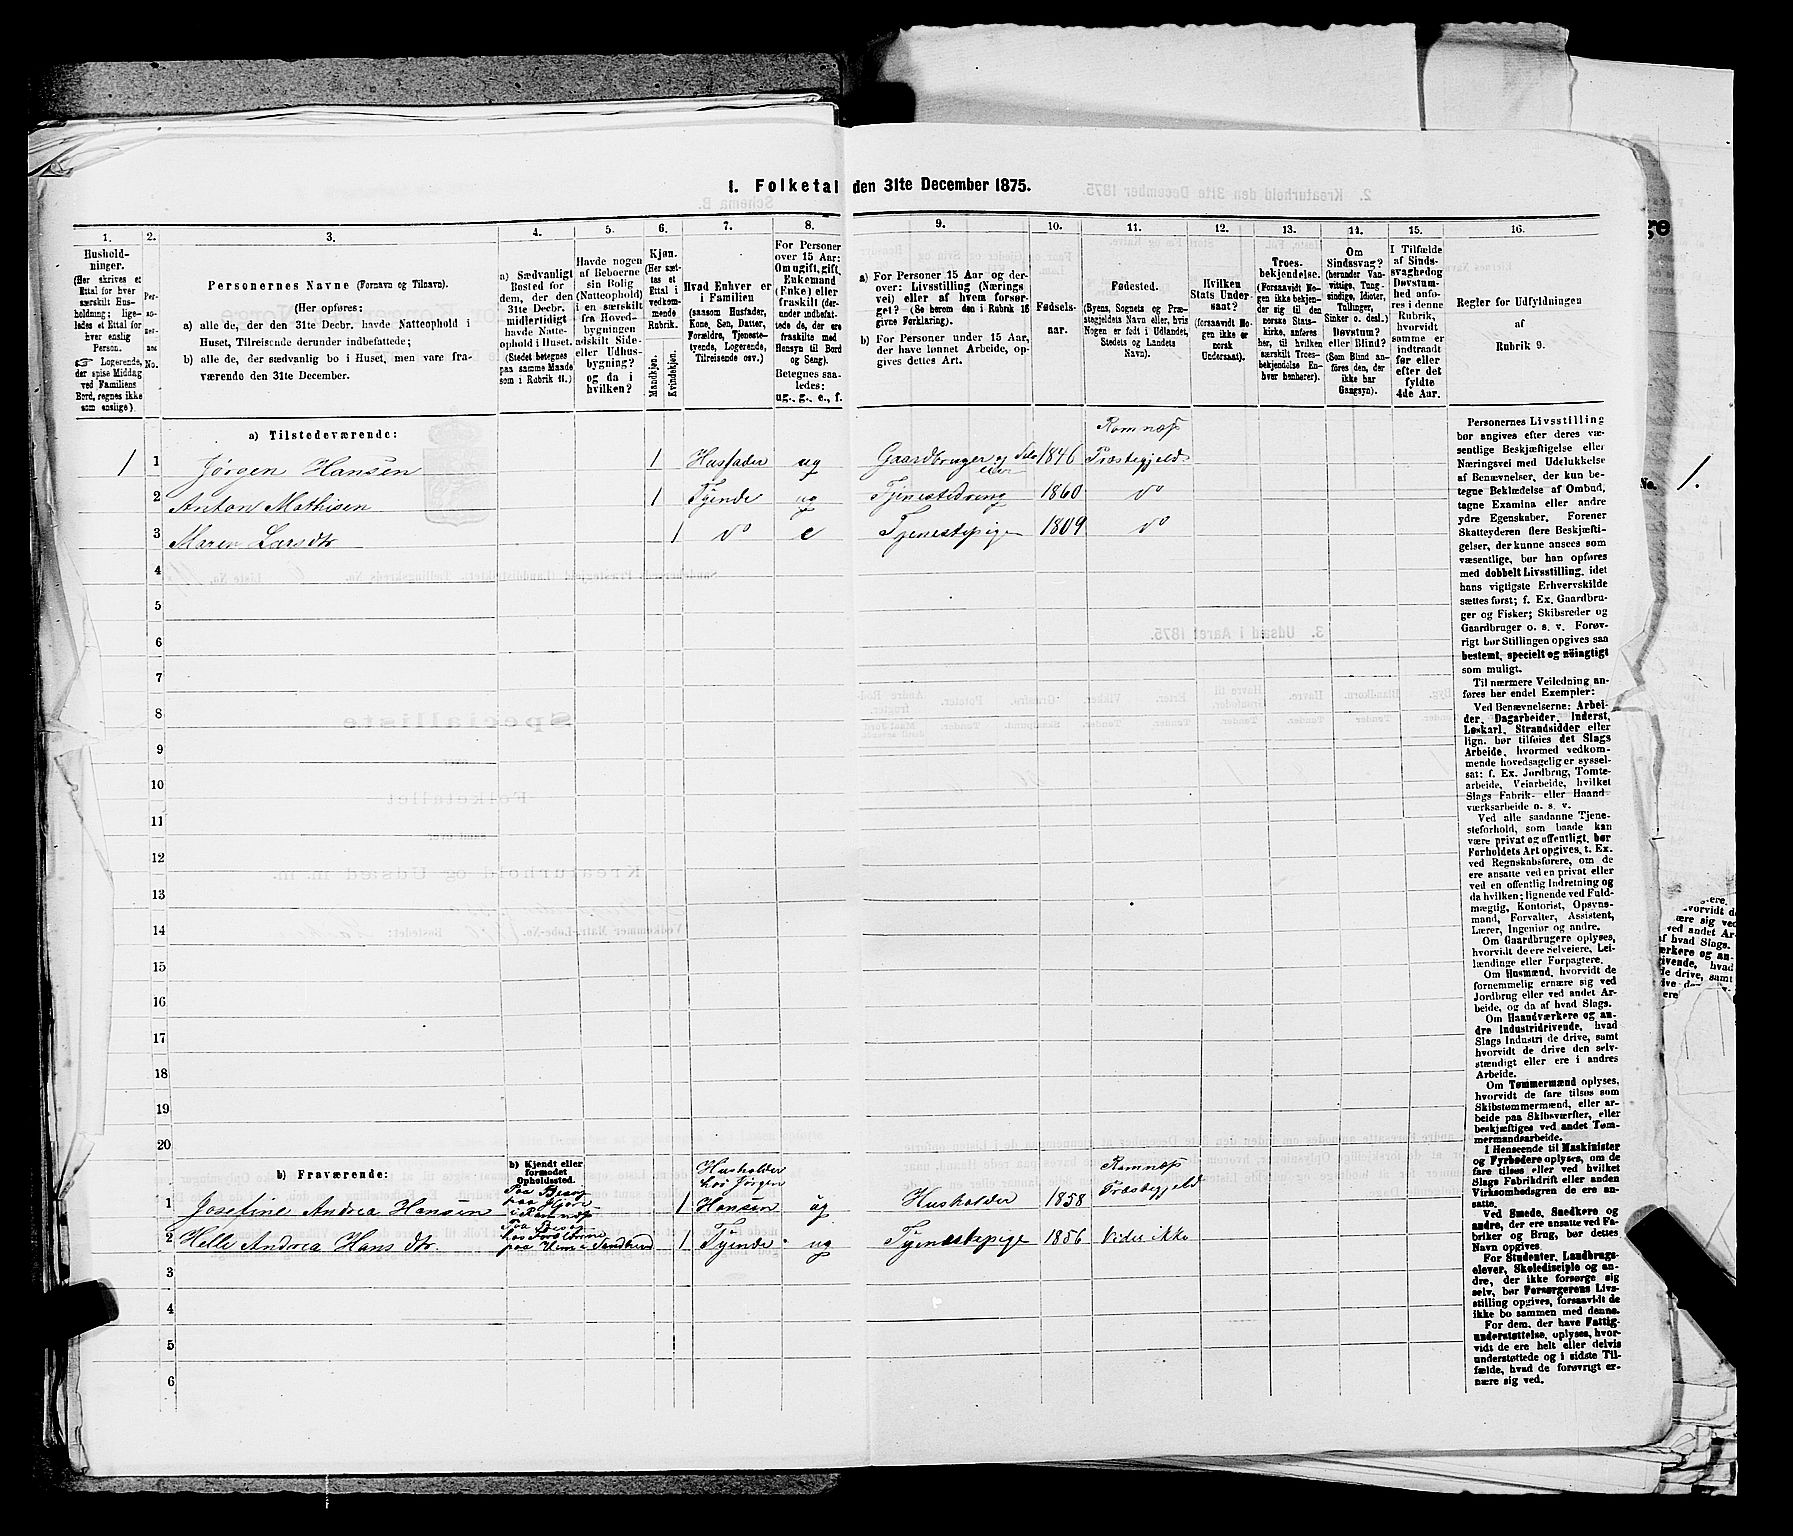 1. Folketal den 31te December 1875.
1.
2.
3.
4.
5.
6.
7.
8.
9.
10.
11.
12.
13.
14.
15.
16.
Hushold-
ninger.
(Her skrives et
Ettal for hver
særskilt Hus-
holdning; lige-
ledes et Ettal for
hver enslig
Person.
☞ Logerende,
der spise Middag
ved Familiens
Bord, regnes ikke
som enslige).
Per-
so-
ner-
nes
No.
Personernes Navne (Fornavn og Tilnavn).
(Her opføres:
a) alle de, der den 31te Decbr. havde Natteophold i
Huset, Tilreisende derunder indbefattede;
b) alle de, der sædvanlig bo i Huset, men vare fra-
værende den 31te December.
a) Sædvanligt
Bosted for
dem, der den
31te Decbr.
midlertidigt
havde Natte-
ophold i Huset.
(Stedet betegnes
paa samme Maade
som i Rubrik 11.)
Havde nogen
af Beboerne
sin Bolig
(Natteophold)
i en særskilt
fra Hoved-
bygningen
adskilt Side-
eller Udhus-
bygning?
og da i
hvilken?
Kjøn.
(Her sæt-
tes et
Ettal i
vedkom-
mende
Rubrik.
Mandkjøn.
Kvindekjøn.
Hvad Enhver er
i Familien
(saasom Husfader,
Kone, Søn, Datter,
Forældre, Tjeneste-
tyende, Logerende,
Tilreisende osv.)
For Personer
over 15 Aar:
Om ugift, gift,
Enkemand
(Enke) eller
fraskilt (der-
under indbefat-
tede de, der ere
fraskilte med
Hensyn til Bord
og Seng).
Betegnes saa-
ledes:
ug., g., e., f.
a) For Personer 15 Aar og der-
over: Livsstilling (Nærings-
vei) eller af hvem forsør-
get? (Se herom den i Rubrik 16
givne Forklaring).
b) For Personer under 15 Aar,
der have lønnet Arbeide, op-
gives dettes Art.
Fødsels-
aar.
Fødested.
(Byens, Sognets og Præ-
stegjeldets Navn eller, hvis
Nogen er født i Udlandet,
Stedets og Landets
Navn).
Hvilken
Stats Under-
saat?
(forsaavidt No-
gen ikke er
norsk
Undersaat).
Troes-
bekjendelse.
(Forsaavidt No-
gen ikke bekjen-
der sig til den
norske Stats-
kirke, anføres
her, til hvilken
særskilt Troes-
bekjendelse En-
hver henhører).
Om
Sindssvag?
(herunder Van-
vittige, Tung-
sindige, Idioter,
Tullinger,
Sinker o. desl.)
Døvstum?
eller Blind?
(Som Blind an-
føres den, der
ikke har
Gangsyn).
I Tilfælde
af Sinds-
svaghed og
Døvstum-
hed anfø-
res i denne
Rubrik,
hvorvidt
samme er
indtraadt
før eller
efter det
fyldte
4de Aar.
Regler for Udfyldningen
af
Rubrik 9.
a) Tilstedeværende:
1 1 Jørgen Hansen 1 Husfader ug Gaardbruger og Selv eier 1846 Ramnæs Præstegjeld
2 Anton Mathisen 1 Tyende ug Tjenestedreng 1860 do
3 Maren Larsdtr 1 do e Tjenestepige 1809 do
4
5
6
7
8
9
10
11
12
13
14
15
16
17
18
19
20
b) Fraværende:
b) Kjendt eller
formodet
Opholdssted.
1 Josefine Andrea Hansen Paa Besøg paa i Ramnæs 1 Husholder hos Jørgen Hansen ug Husholder 1858 Ramnæs Præstegjeld
2 Helle Andrea Hansdtr. Paa Besøg hos Forældrene paa i Sandeherred 1 Tyende ug Tjenestepige 1856 Vides ikke
3
4
5
6
Personernes Livsstilling
bør angives efter deres væ-
sentlige Beskjæftigelse eller
Næringsvei med Udelukkelse
af Benævnelser, der kun be-
tegne Beklædelse af Ombud,
tagne Examina eller andre
ydre Egenskaber. Forener
Skatteyderen flere Beskjæfti-
gelser, der kunne ansees som
væsentlige, bør han opføres
med dobbelt Livsstilling, idet
hans vigtigste Erhvervskilde
sættes først; f. Ex. Gaardbru-
ger og Fisker; Skibsreder og
Gaardbruger o. s. v. Forøv-
rigt bør Stillingen opgives saa
bestemt, specielt og nöiagtigt
som muligt.
Til nærmere Veiledning an-
føres her endel Exempler:
Ved Benævnelserne: Arbei-
der, Dagarbeider, Inderst,
Løskarl, Strandsidder eller
lign. bør tilføies det Slags
Arbeide, hvormed vedkom-
mende hovedsagelig er syssel-
sat: f. Ex. Jordbrug, Tomte-
arbeide, Veiarbeide, hvilket
Slags Fabrik- eller Haand-
værksarbeide o. s. v.
Ved alle saadanne Tjene-
steforhold, som baade kan
være privat og offentligt, bør
Forholdets Art opgives, t. Ex.
ved Regnskabsførere, om de
ere ansatte ved en privat eller
ved en offentlig Indretning og
da hvilken; lignende ved Fuld-
mægtig, Kontorist, Opsyns-
mand, Forvalter, Assistent,
Lærer, Ingeniør og andre.
Om Gaardbrugere oplyses,
hvorvidt de ere Selveiere, Lei-
lændinge eller Forpagtere.
Om Husmænd, hvorvidt de
fornemmelig ernære sig ved
Jordbrug eller ved andet Ar-
beide, og da af hvad Slags.
Om Haandværkere og an-
dre Industridrivende, hvad
Slags Industri de drive, samt
hvorvidt de drive den selv-
stændigt eller ere i andres
Arbeide.
Om Tømmermænd oplyses,
hvorvidt de fare tilsøs som
Skibstømmermænd, eller ar-
beide paa Skibsværfter, eller
beskjæftiges ved andet Tøm-
mermandsarbeide.
I Henseende til Maskinister
og Fyrbødere oplyses, om de
fare tilsøs eller ved hvilket
Slags Fabrikdrift eller anden
Virksomhedsgren de ere an-
satte.
Ved Smede, Snedkere og
andre, der ere ansatte ved Fa-
briker og Brug, bør dennes
Navn opgives.
For Studenter, Landbrugs-
elever, Skoledisciple og an-
dre, der ikke forsørge sig
selv, bør Forsørgerens Livs-
stilling opgives, forsaavidt de
ikke bo sammen med denne.
For dem, der have Fattig-
understøttelse, oplyses, hvor-
vidt de ere helt eller delvis
understøttede og i sidste Til-
fælde, hvad de forøvrigt er-
nære sig ved.
No. 1.